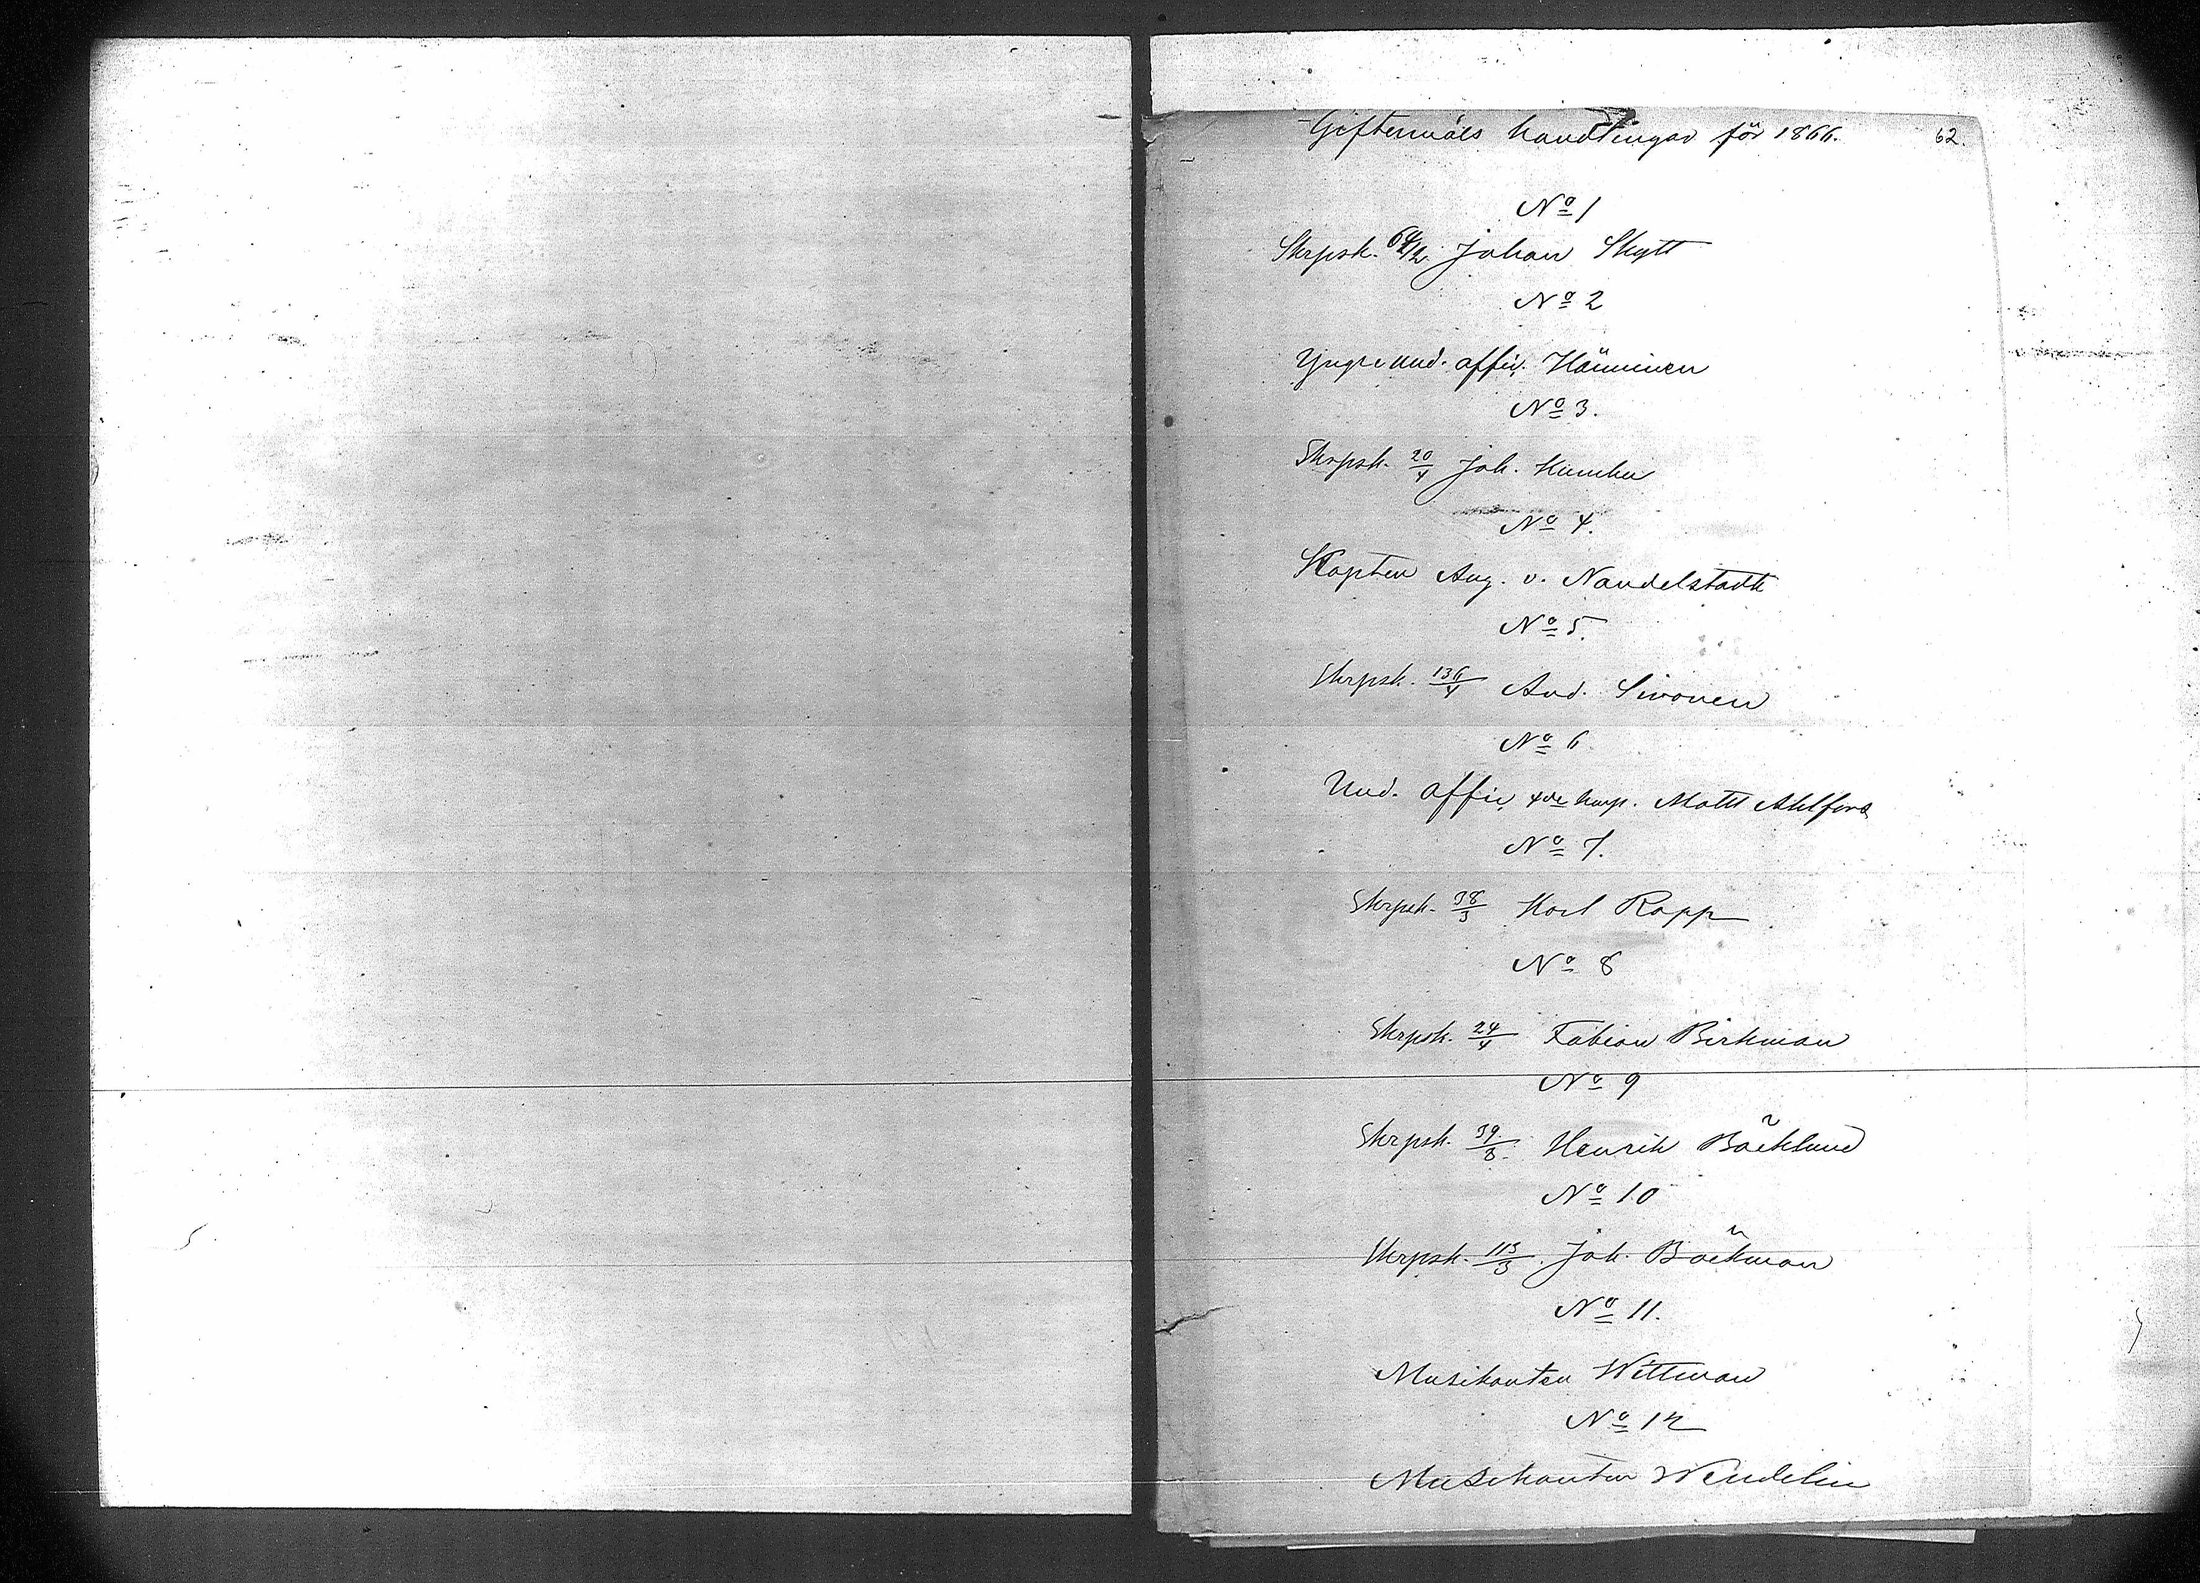 Giftermåls handlingar för 1866.
62.
No 1
Skrpsk. 64/2. Johan Skytt
No 2
Yngre und. offic. Hänninen
No 3.
Skrpsk. 20/4 Joh.
No 4.
Kapten Aug. v. Nandelstadh
No 5.
Skrpsk. 136/4 And. Sivonen
No 6
Und. offic. 4de komp. Matt Ahlfors
No 7.
Skrpsk. 38/3 Karl Rapp
No 8
Skrpsk. 24/4 Fabian Birkman
No 9
Skrpsk. 39/3. Henrik Bäcklund
No 10
Skrpsk. 113/3 Joh. Bäckman
No 11.
Musikanten Wittman
No 12
Musikanten Wendelin